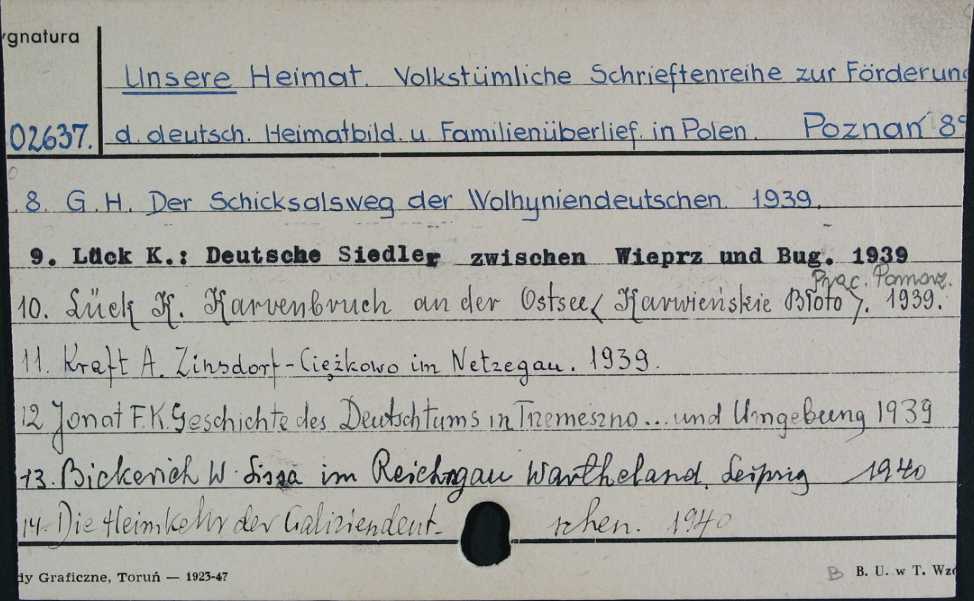 ygnatura
Unsere Heimat. Volkstümliche Schrieftenreihe zur Förderung
02637. d. deutsch. Heimatbild. u. Familienüberlief. in Polen. Poznań
8. G.H. Der Schicksalsweg der Wolhyniendeutschen 1939.
9. Lück K.: Deutsche Siedler zwischen Wieprz und Bug. 1939
Prac. Pomorz.
10. Lück K. Karvenbruch an der Ostsee (Karwieńskie Błoto). 1939.
11. Kraft A. Zinsdorf-Ciężkowo im Netzegau. 1939.
12 Jonat F.K. Geschichte des Deutschtums in Tremeszno... und Umgebung 1939
13. Bickerich W. Lissa im Reichsgau Wartheland. Leipzig 1940
14. Die Heimkehr der Galiziendeut- schen. 1940
dy Graficzne, Toruń — 1923-47 B B. U. w T. Wzó